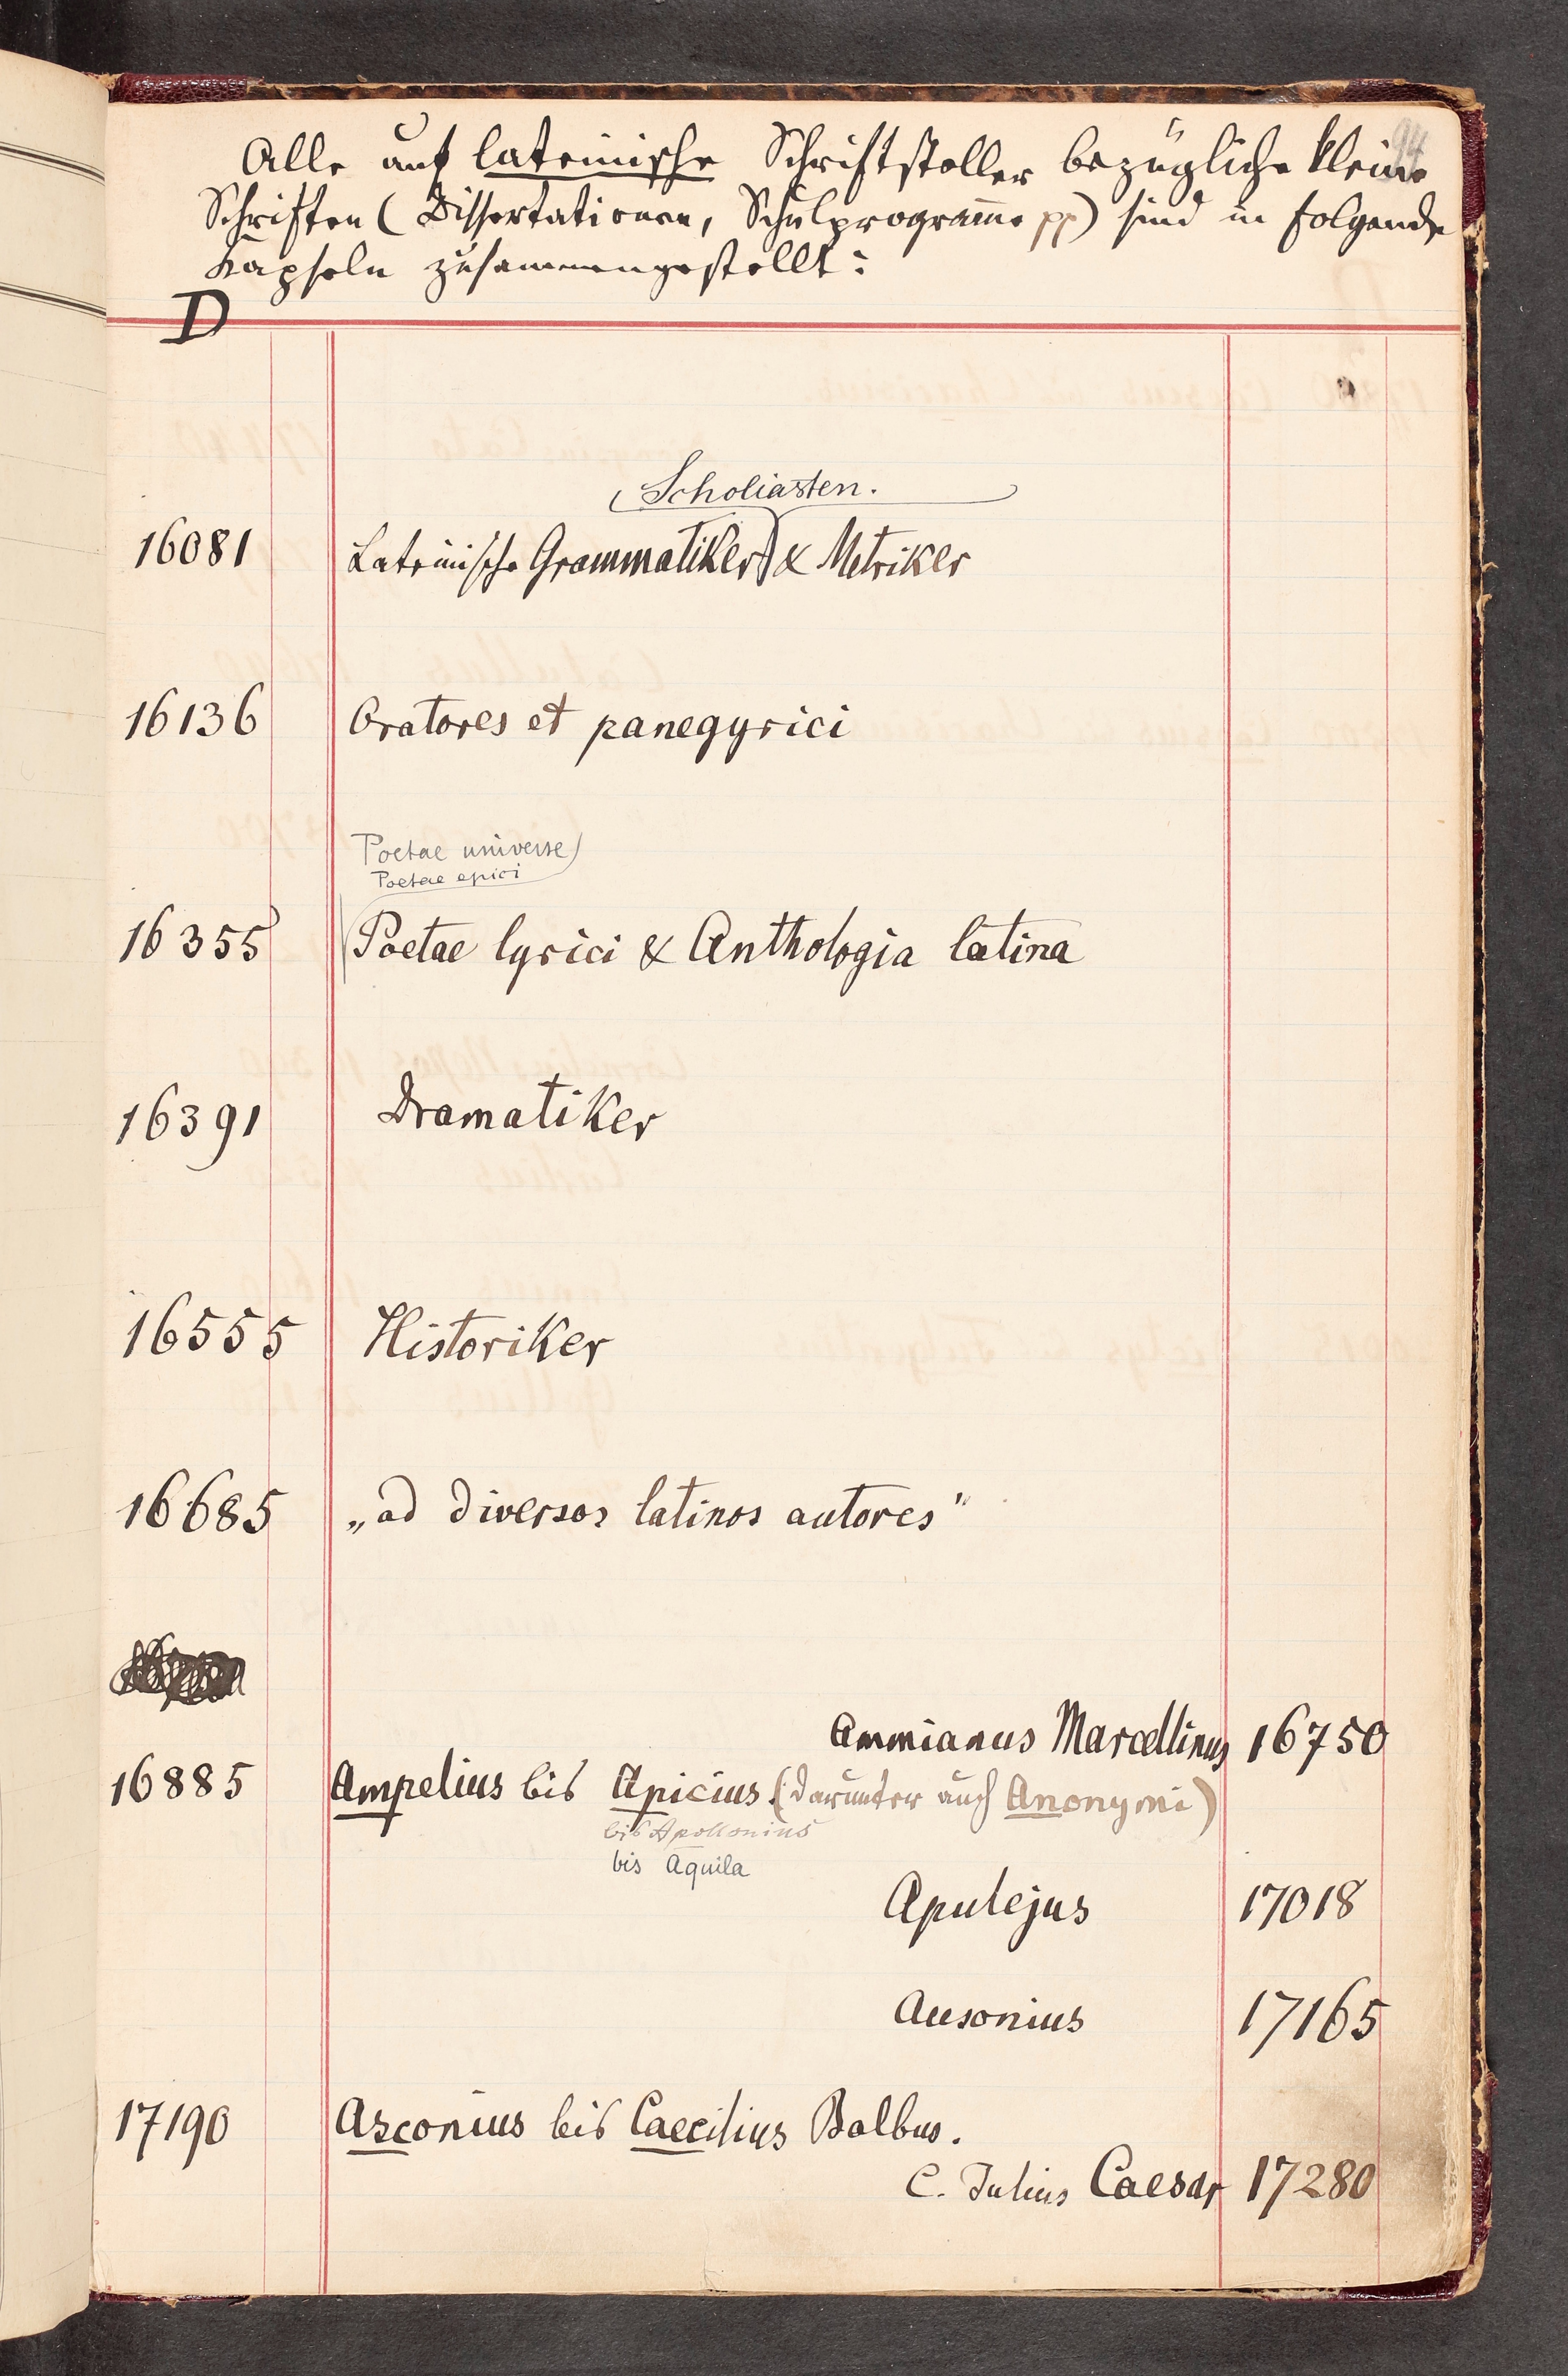 94
Alle auf lateinische Schriftsteller bezügliche kleine
Schriften (Dissertationen, Schulprogramme pp) sind in folgende
Kapseln zusammengestellt:
D
Scholiasten.
16081 Lateinische Grammatiker & Metriker
16136 Oratores et panegyrici
Poetae universe
Poetae epici
16355 Poetae lyrici & Anthologia latina
16391 Dramatiker
16555 Historiker
16685 „ad diversos latinos autores"
Ammianus Marcellinus 16750
16885 Ampelius bis Apicius. (darunter auch Anonymi)
bis Apollonius
bis Aquila
Apulejus 17018
Ausonius 17165
17190 Asconius bis Caecilius Balbus.
C. Julius Caesar 17280